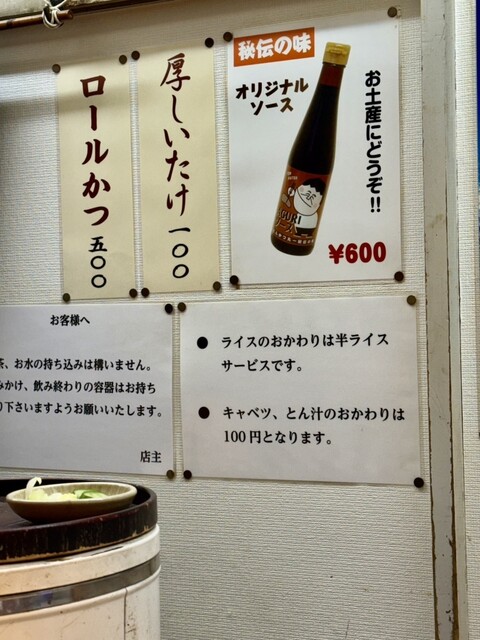 秘伝の味
オリジナル
ソース
お土産にどうぞ!!
¥600
GURI
ソース
厚しいたけ 一〇〇
ロールかつ 五〇〇
お客様へ
茶、お水の持ち込みは構いません。
みかけ、飲み終わりの容器はお持ち
り下さいますようお願いいたします。
店主
● ライスのおかわりは半ライス
サービスです。
● キャベツ、とん汁のおかわりは
100円となります。